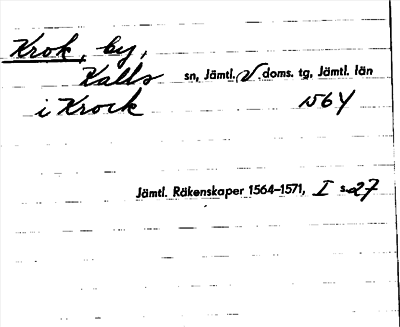 Krok, by,
Kalls sn, Jämtl. V doms. tg, Jämtl. län
i Krock 1564
Jämtl. Räkenskaper 1564–1571, I s. 27